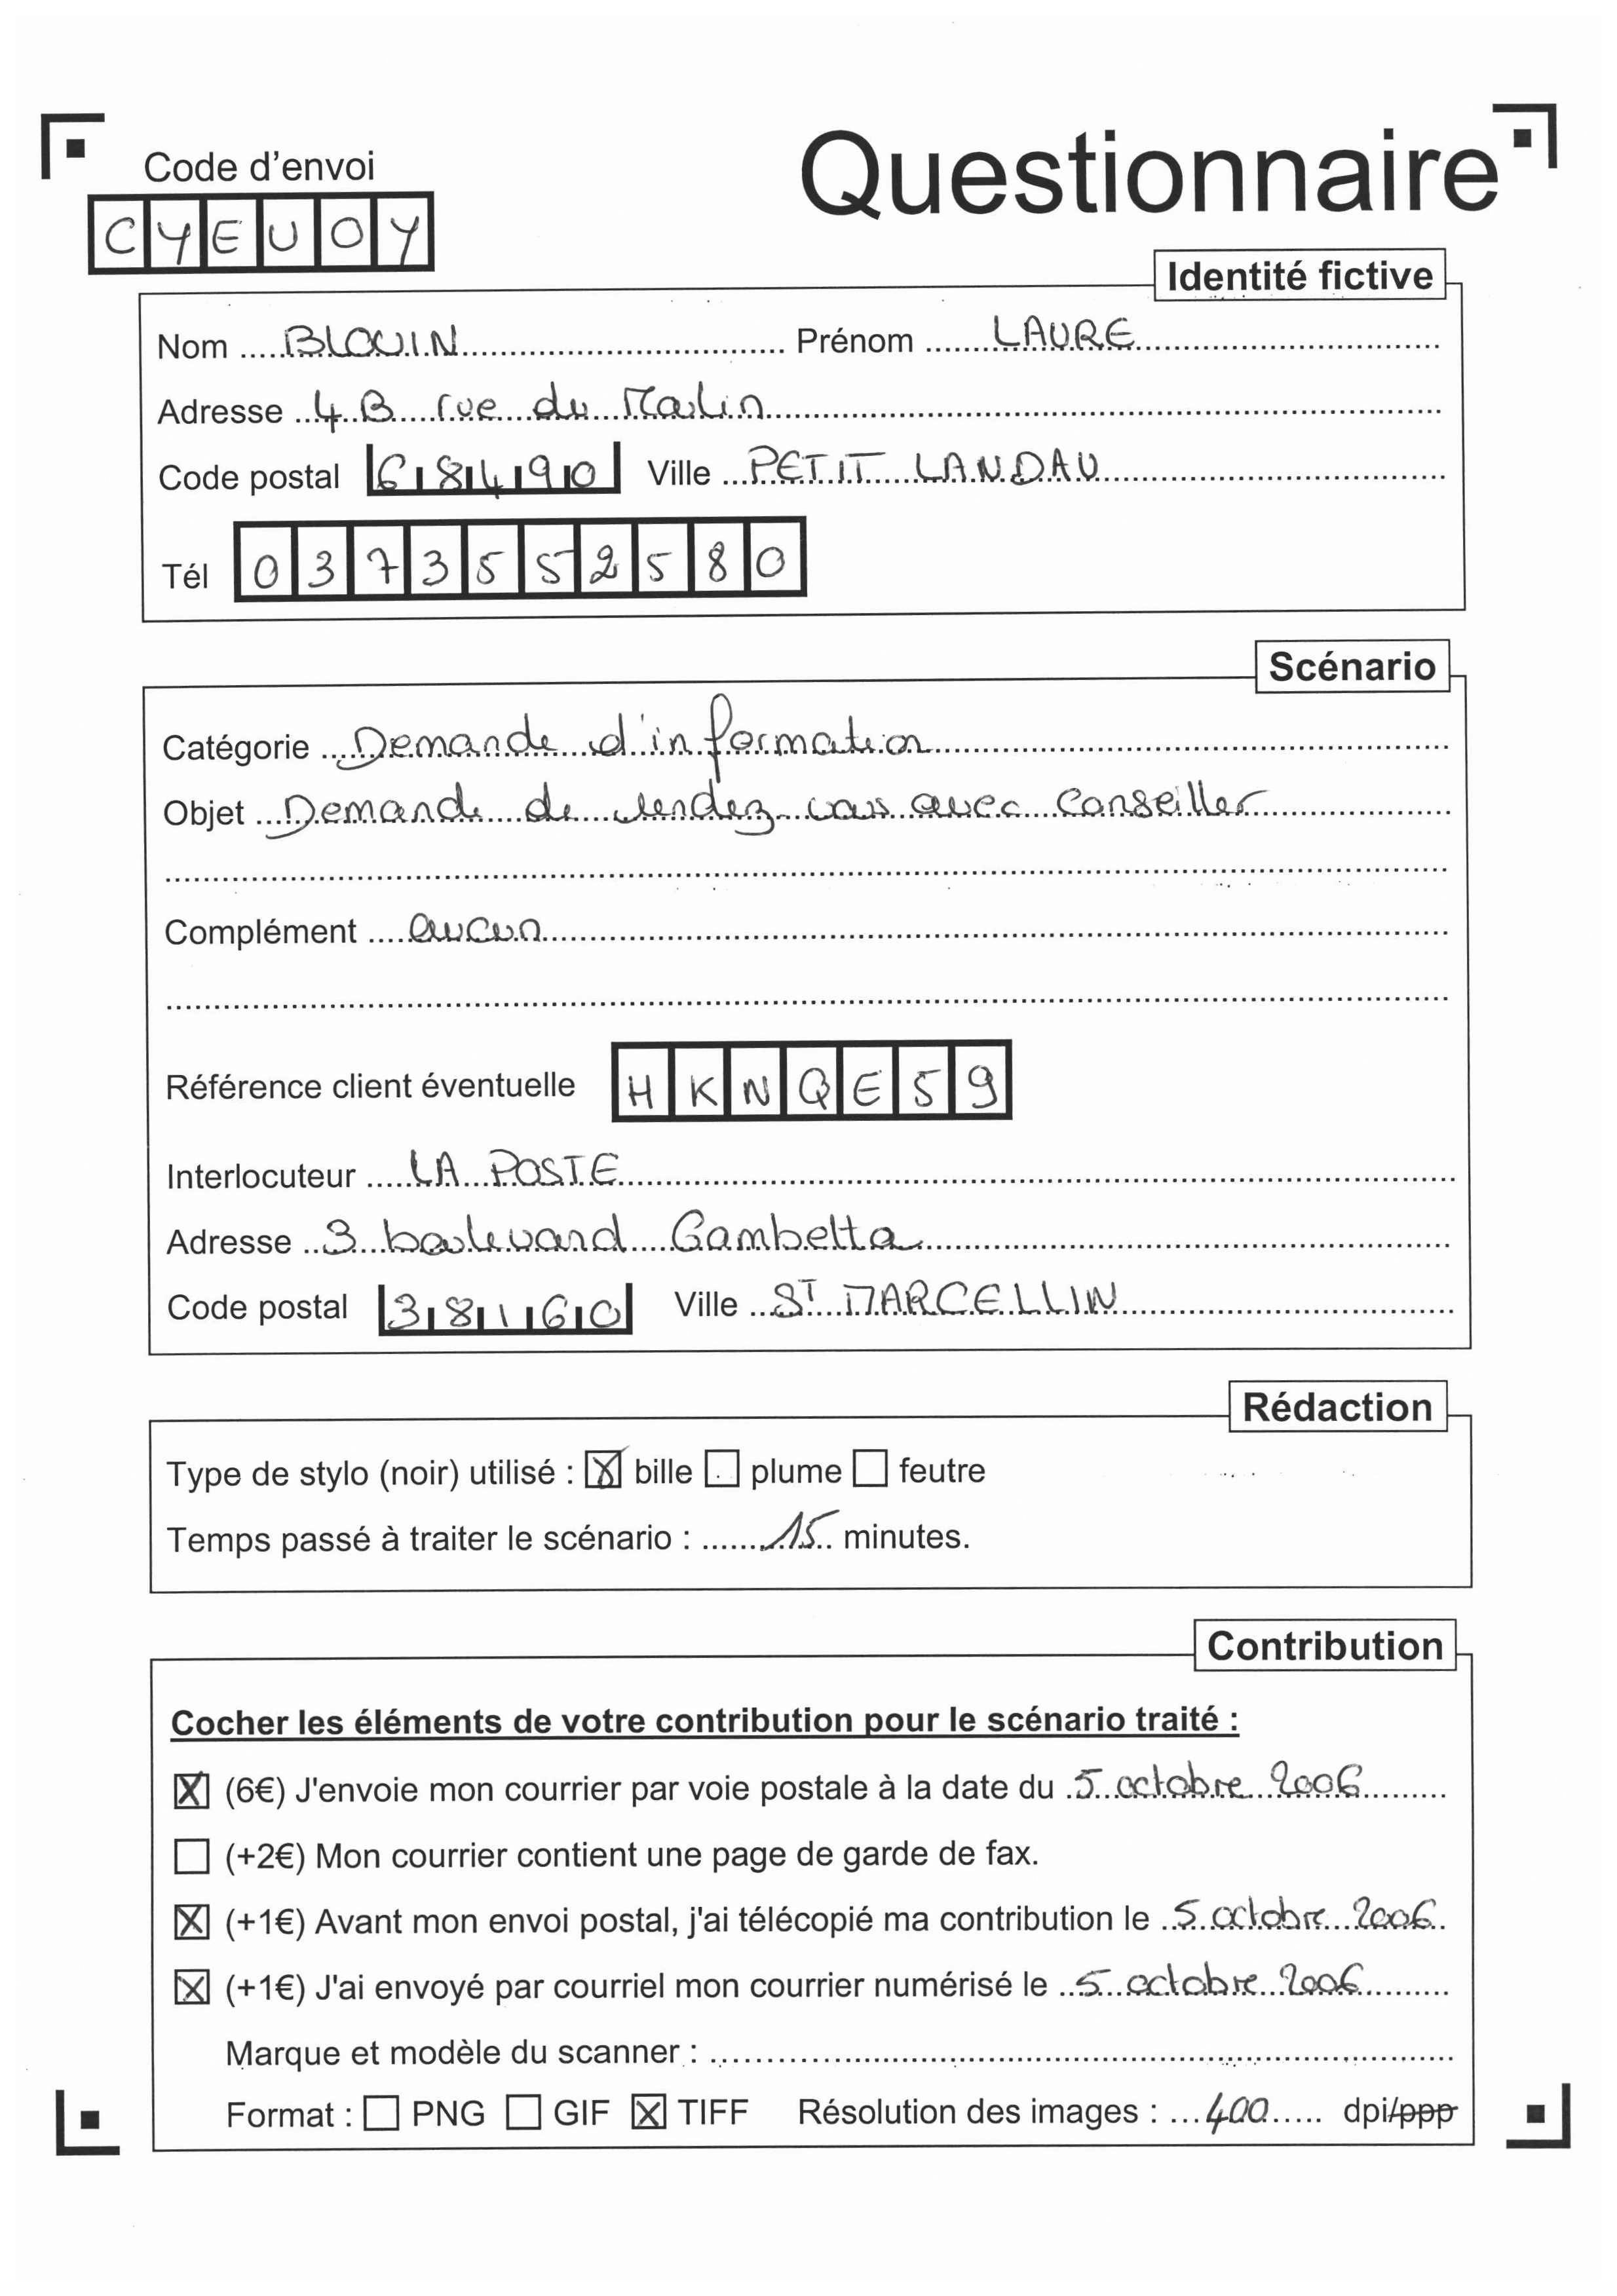 Questionnaire
Code d'envoi
CYEUOY
Identité fictive
Nom BLOUIN Prénom LAURE
Adresse 4 B rue du Moulin
Code postal 68490 Ville PETIT LANDAU
Tél 0373552580
Scénario
Catégorie Demande d'information
Objet Demande de rendez-vous avec conseiller
Complément aucun
Référence client éventuelle HKNQE59
Interlocuteur LA POSTE
Adresse 3 boulevard Gambetta
Code postal 38160 Ville ST MARCELLIN
Rédaction
Type de stylo (noir) utilisé : bille plume feutre
Temps passé à traiter le scénario : 15 minutes.
Contribution
Cocher les éléments de votre contribution pour le scénario traité :
(6€) J'envoie mon courrier par voie postale à la date du 5 octobre 2006
(+2€) Mon courrier contient une page de garde de fax.
(+1€) Avant mon envoi postal, j'ai télécopié ma contribution le 5 octobre 2006
(+1€) J'ai envoyé par courriel mon courrier numérisé le 5 octobre 2006
Marque et modèle du scanner :
Format : PNG GIF TIFF Résolution des images : 400 dpi/ppp